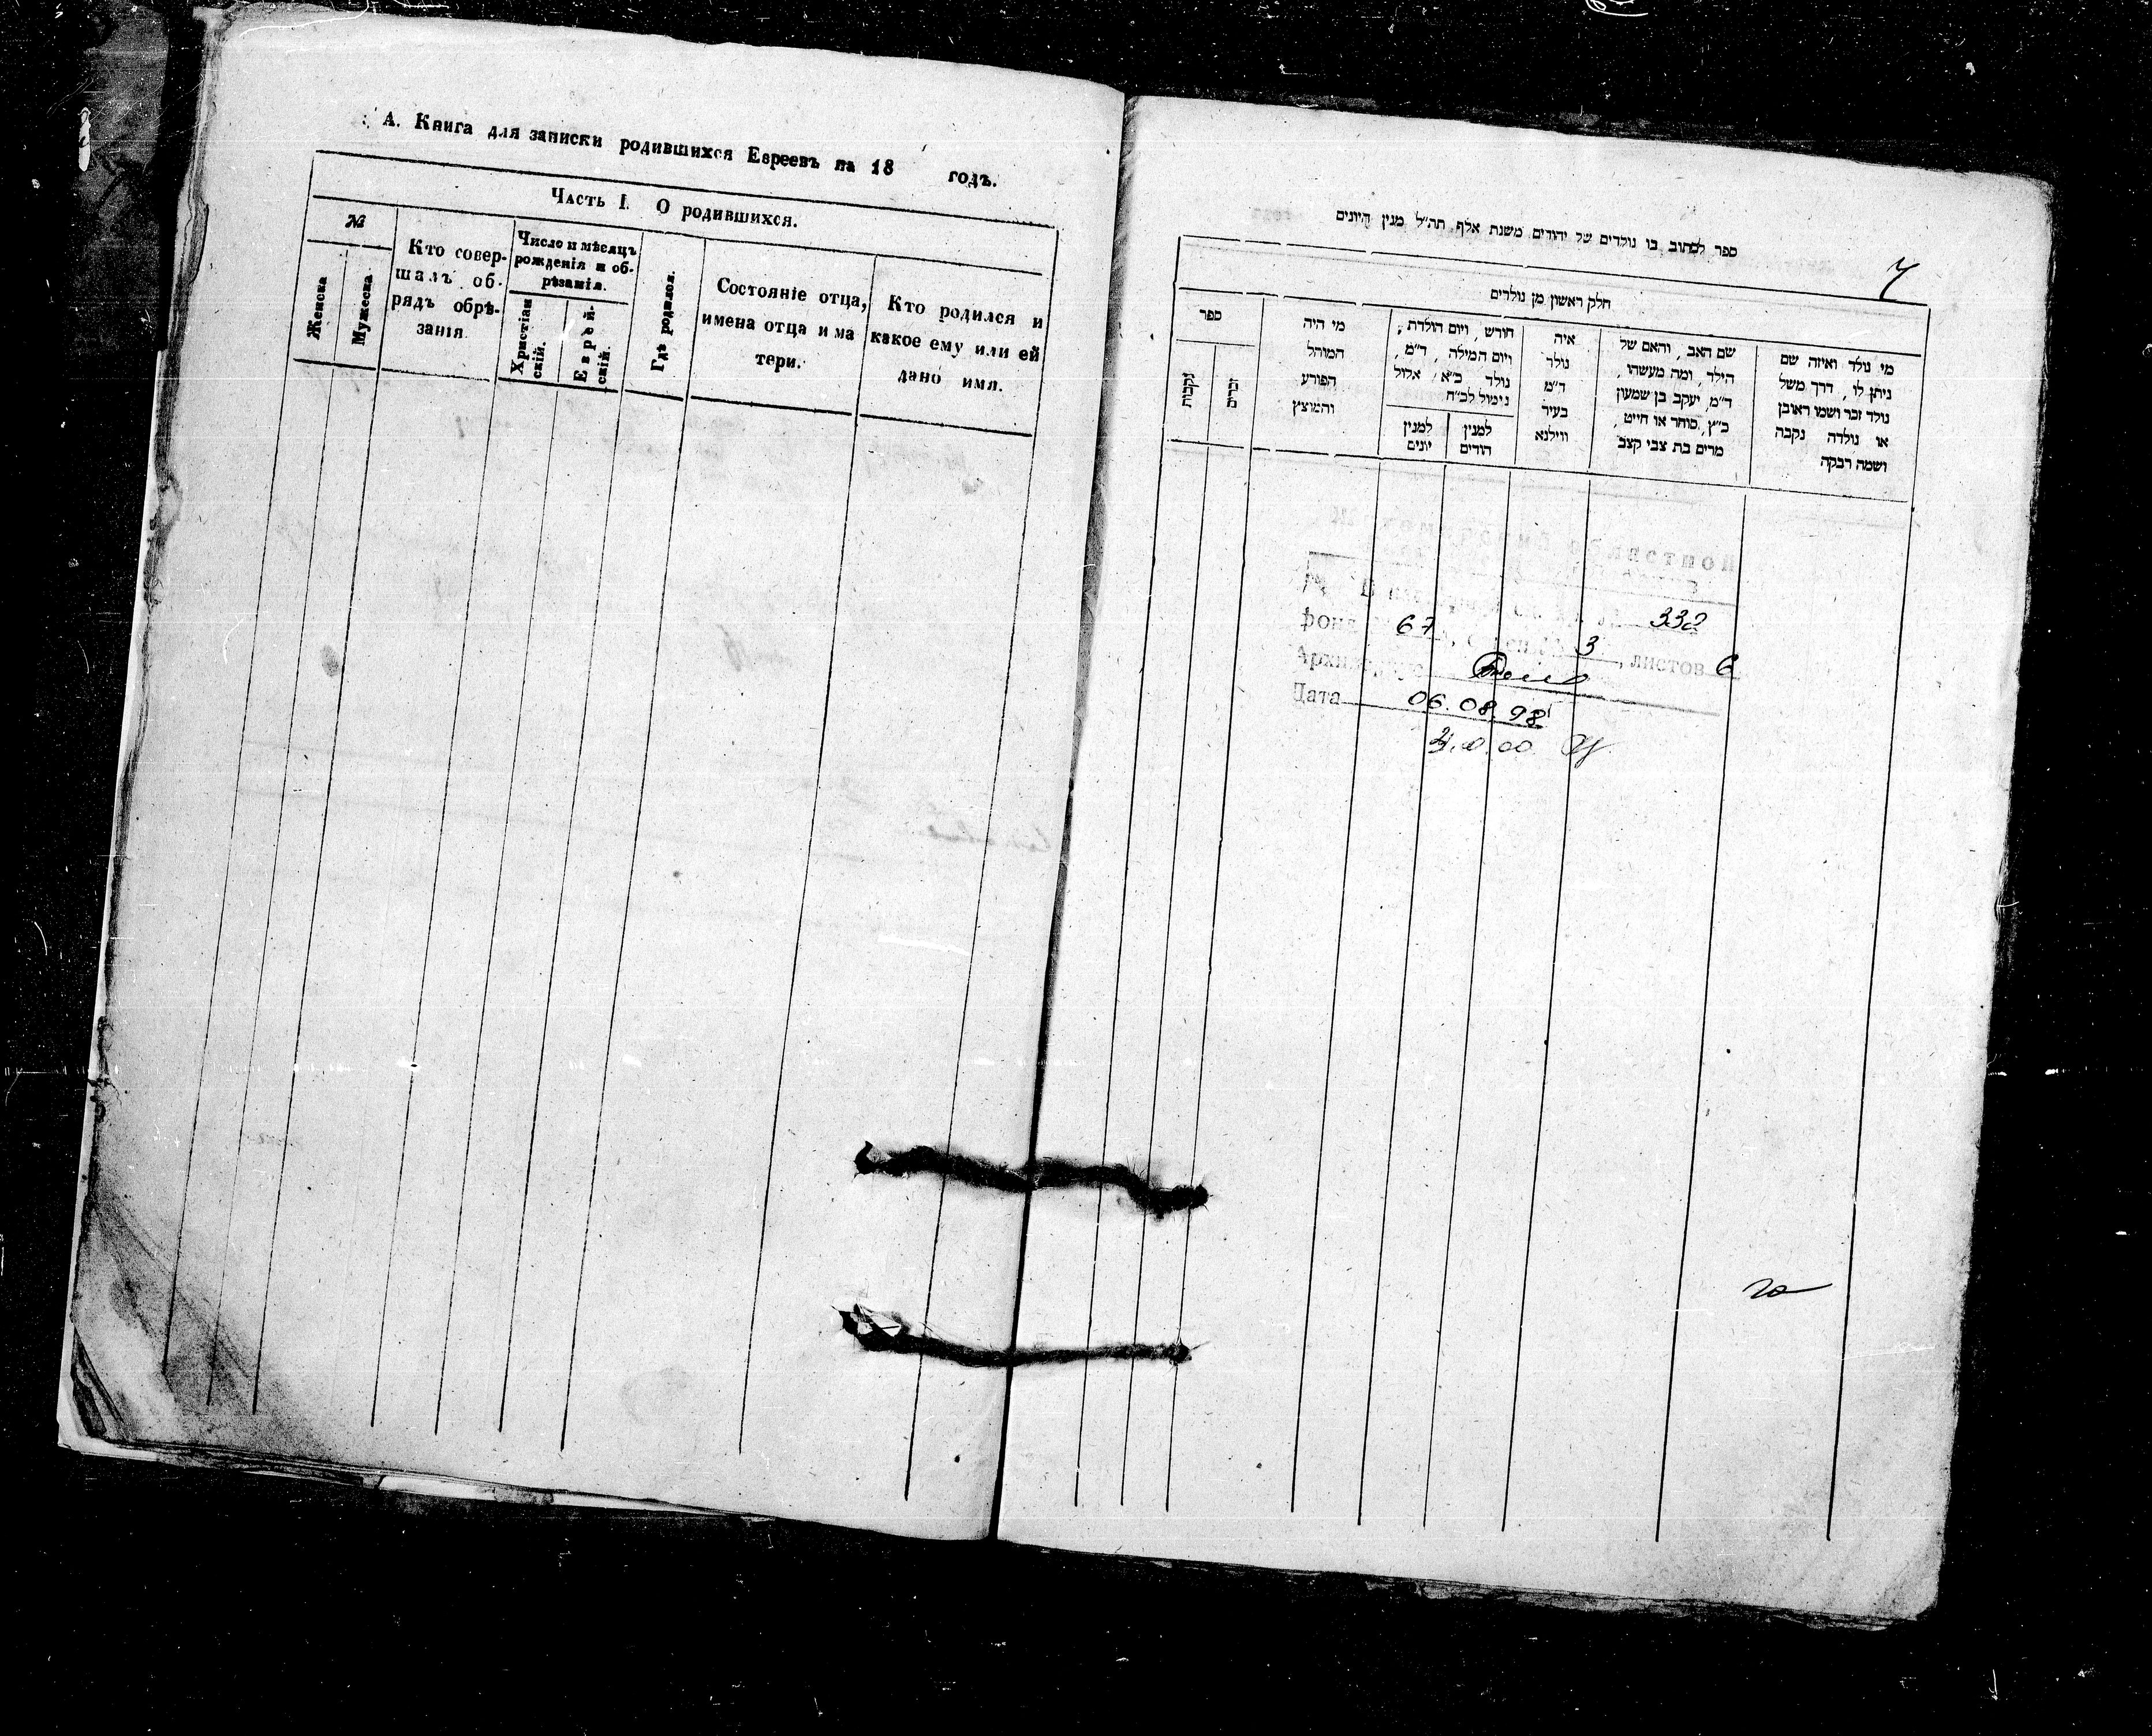 А. Книга для записки родившихся Евреевъ на 18 годъ.
Часть I. О родившихся.
№
Женска
Мужеска
Кто совер-
шалъ об-
рядъ обрѣ-
занія.
Число и мѣсяцъ
рожденія и об-
рѣзанія.
Христіан
скій.
Еврей-
скій.
Гдѣ родился.
Состояніе отца,
имена отца и ма
тери.
Кто родился и
какое ему или ей
дано имя.
7
ספר לכתוב בו נולדים של יהודים משנת אלף תה״ל מנין היונים
חלק ראשון מן נולדים
מי נולד ואיזה שם
ניתן לו, דרך משל
נולד זכר ושמו ראובן
או נולדה נקבה
ושמה רבקה
שם האב, והאם של
הילד, ומה מעשהו,
ד״מ, יעקב בן שמעון
כ״ץ, סוחר או חייט,
מרים בת צבי קצב
איה
נולד
ד״מ
בעיר
ווילנא
חורש, ויום הולדת,
ויום המילה, ד״מ,
נולד כ״א אלול
נימול לכ״ח
למנין
הודים
למנין
יונים
מי היה
המוהל
הפורע
והמוצץ
ספר
זכרים
נקבות
областной
332
фонд 67, 3, листов 6
Дата 06.08.98